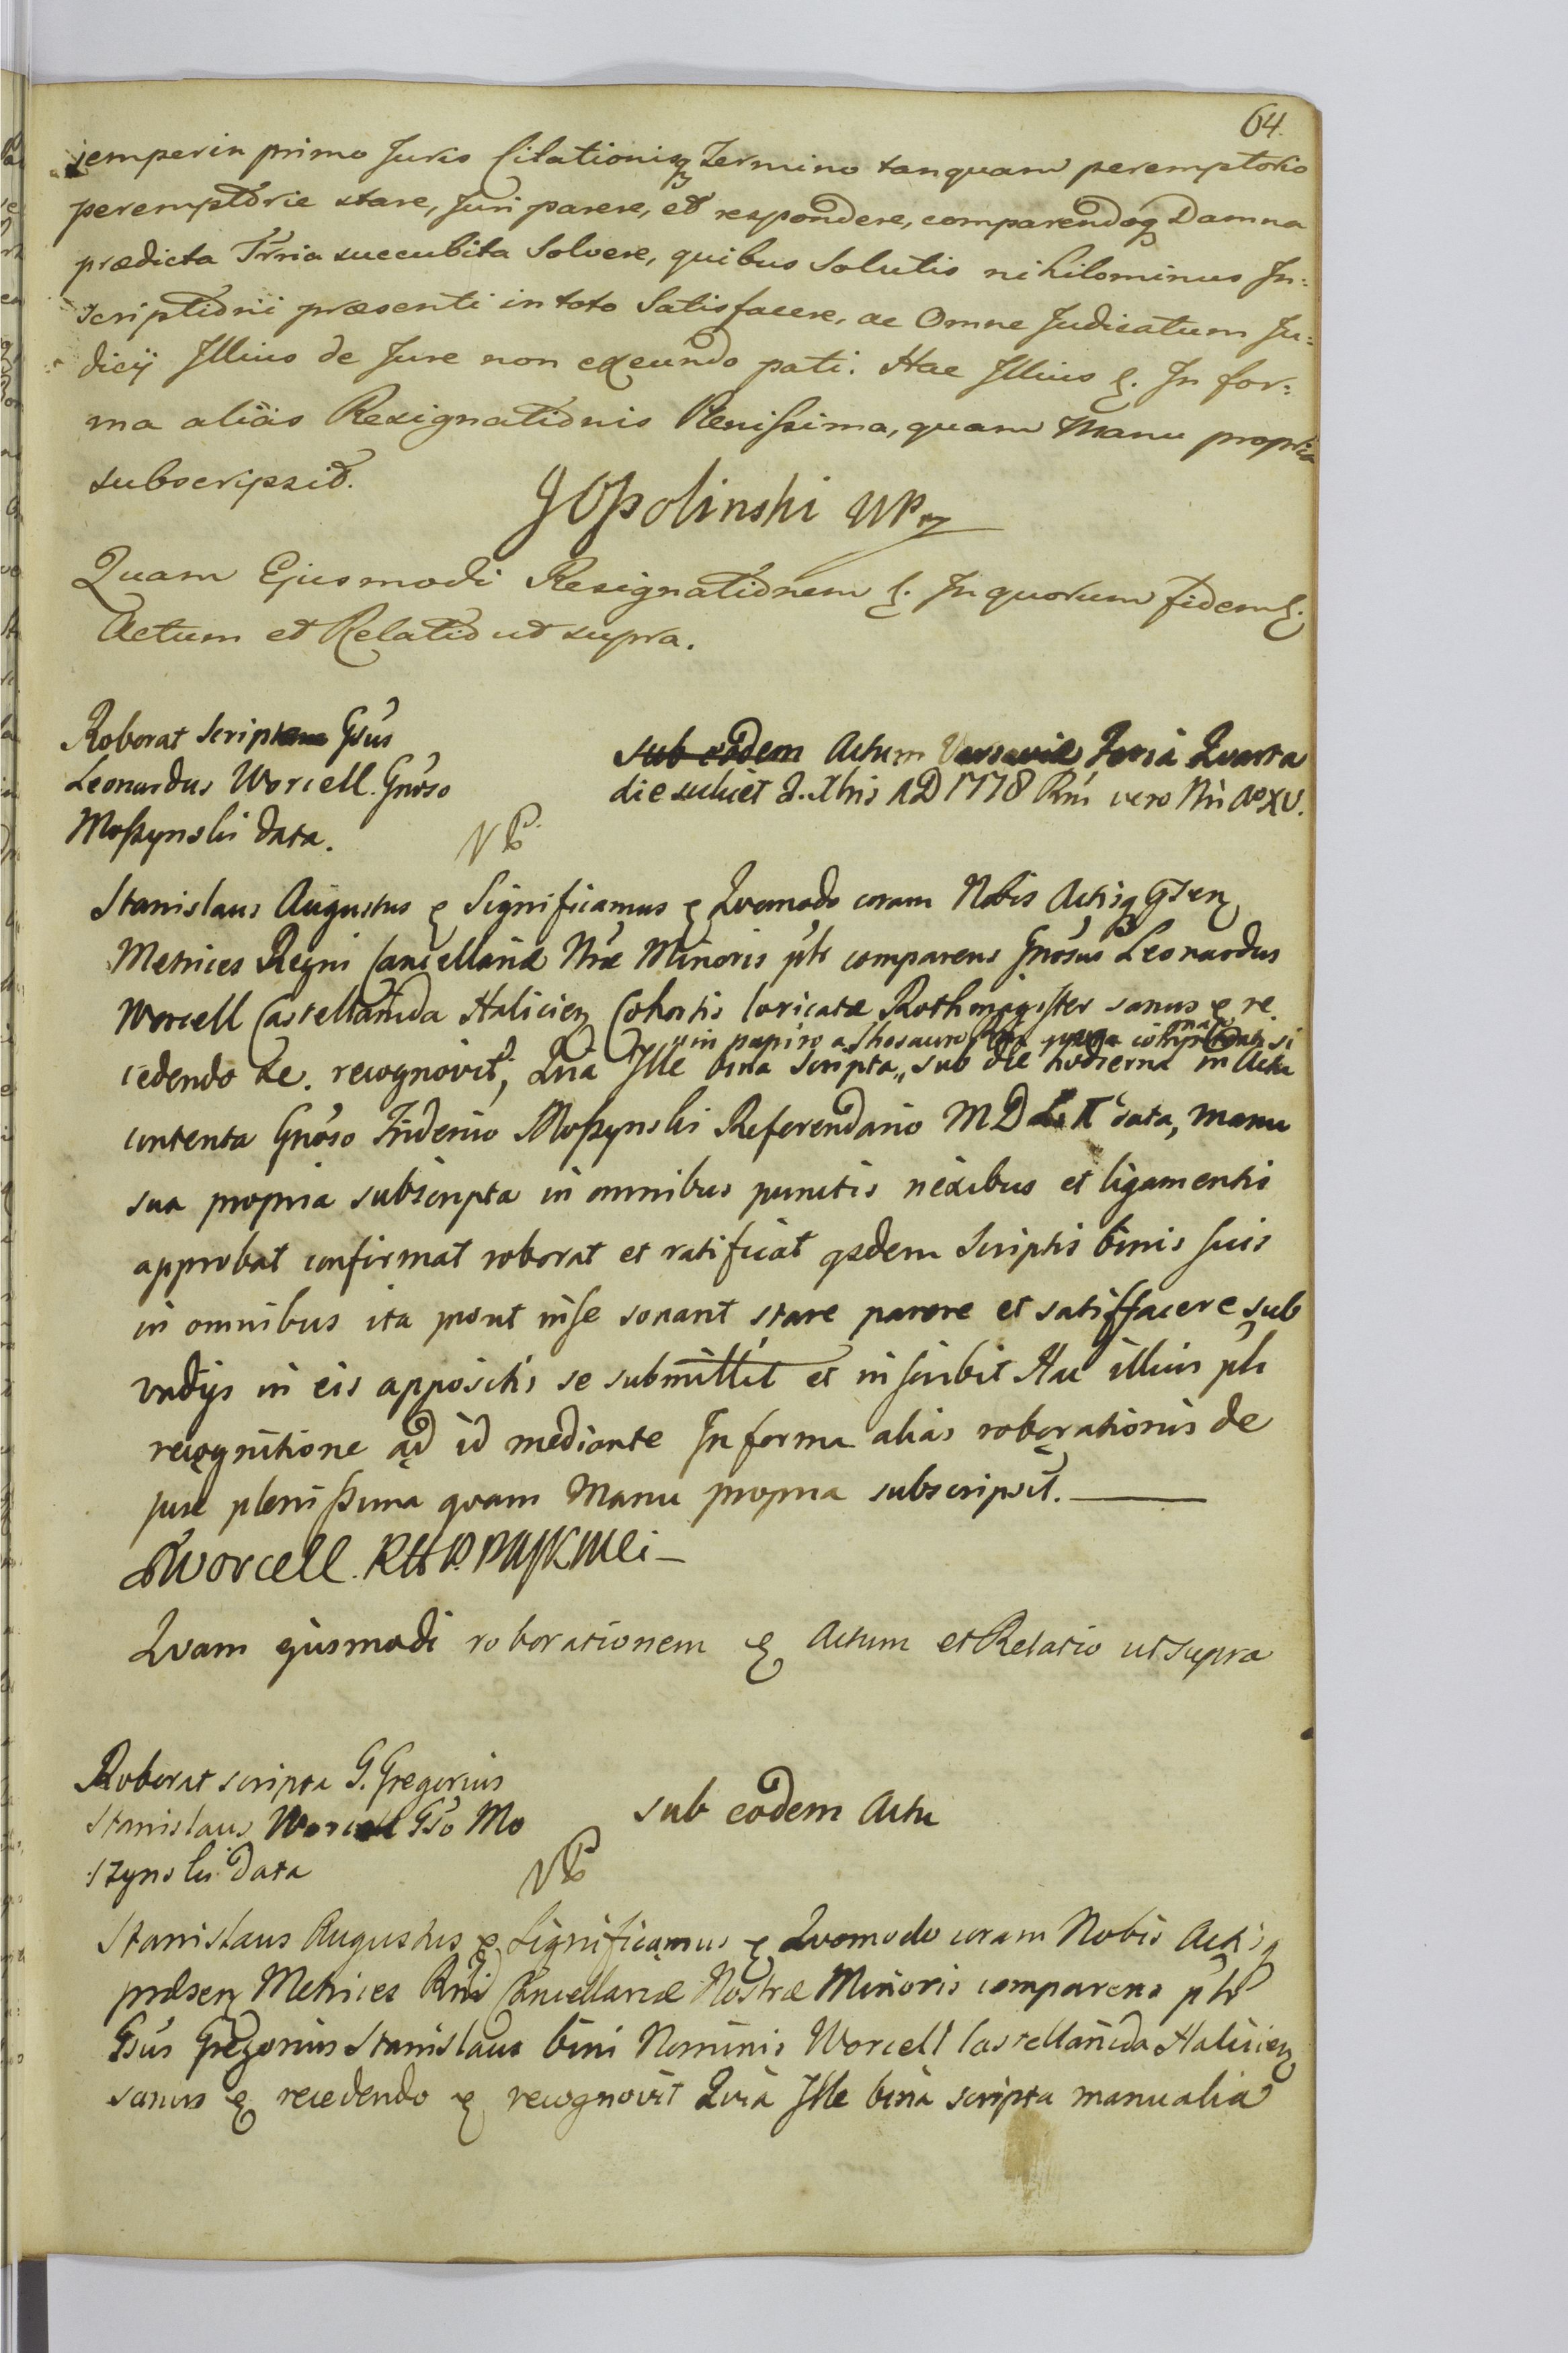 64.
semper in primo Juris Citationisq Termino tanquam peremptorio
peremptorie stare, Juri parere, et respondere, comparendoq Damna
prædicta Trria succubita Solvere, quibus Solutis nihilominus In:
scriptioni præsenti in toto Satisfacere, ac Omne Judicatum Ju:
dicij Illius de Jure non exeundo pati. Hac Illius &. In for:
ma alias Resignationis Plenissima, quam Manu propria
subscripsit.
JOpolinski MPr
Quam Ejusmodi Resignationem &. In quorum fidem &.
Actum et Relatio ut supra.
Roborat Scripta Gsus
Leonardus Worcell Gnoso
Moszynski data.
sub eodem Actum Varsaviæ Feria Quarta
die scilicet 2. Xbris AD 1778 Rni vero Nri Ao XV.
NP
Stanislaus Augustus & Significamus & Quomodo coram Nobis Actisq Gsen
Metrices Regni Cancellariæ Nræ Minoris plr comparens Gnosus Leonardus
Worcell Castellanida Haliciens Cohortis loricatæ Rothmagister sanus & re
in papiro a Thesauro
cedendo &c. recognovit, Quia Ille bina Scripta,, sub die hodierna in Actu
contenta Gnoso Friderico Moszynski Referendario MDL II data, manu
sua propria subscripta in omnibus punctis nexibus et ligamentis
approbat confirmat roborat et ratificat qsdem Scriptis binis suis
in omnibus ita prout in se sonant stare parere et satisfacere sub
vadijs in eis appositis se submittit et inscribit Hac illius pli
recognitione ad id mediante In forma alias roborationis de
jure plenissima quam Manu propria subscripsit.
LWorcell.
Quam ejusmodi roborationem & Actum et Relatio ut supra
Roborat scripta G. Gregorius
Stanislaus Worcell Gso Mo
szynski data
sub eodem Actu
NP
Stanislaus Augustus & Significamus & Quomodo coram Nobis Actisq
præsen Metrices Rni Cancellariæ Nostræ Minoris comparens plr
Gsus Gregorius Stanislaus bini Nominis Worcell Castellanida Halicien
sanus & recedendo & recognovit Quia Ille bina scripta manualia